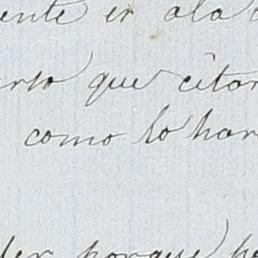 ente er ala
erso que citar
como lo har
der porque he